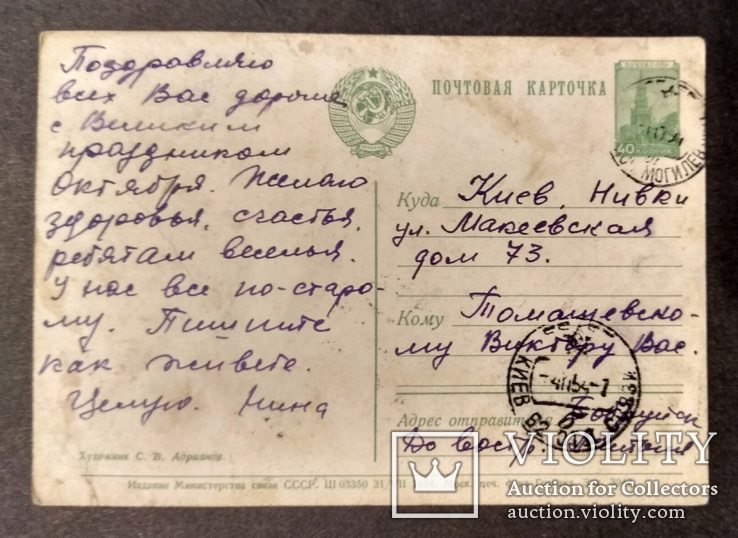 Поздравляю
всех Вас дорогие
с Великим
праздником
Октября. Желаю
здоровья, счастья,
ребятам веселья.
У нас все по-старо-
му. Пишите
как живете.
Целую. Нина
Художник С. В. Адрианов.
ПОЧТОВАЯ КАРТОЧКА
ПОЧТА СССР
40
МОГИЛЕВ
Куда Киев, Нивки
ул. Макеевская
дом 73.
Кому Томашевско-
му Виктору Вас.
КИЕВ
-41154-7
Адрес отправит
До востр.
Издание Министерства связи СССР. Ш 03350 31/
VIOLITY
Auction for Collectors
auction.violity.com